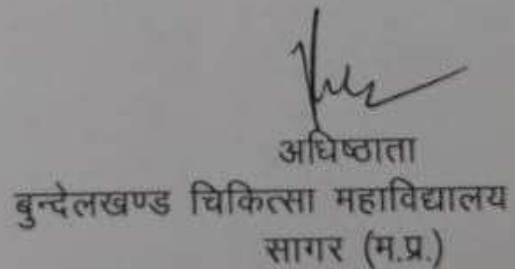 अधिष्ठाता
बुन्देलखण्ड चिकित्सा महाविद्यालय
सागर (म.प्र.)